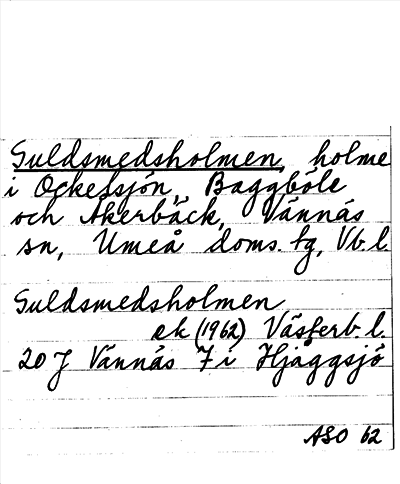 Guldsmedsholmen, holme
i Ockelsjön, Baggböle
och Åkerbäck, Vännäs
sn, Umeå doms. tg, Vb. l
Guldsmedsholmen
ek (1962) Västerb. l.
20 J Vännäs 7 i Hjåggsjö
ASO 62